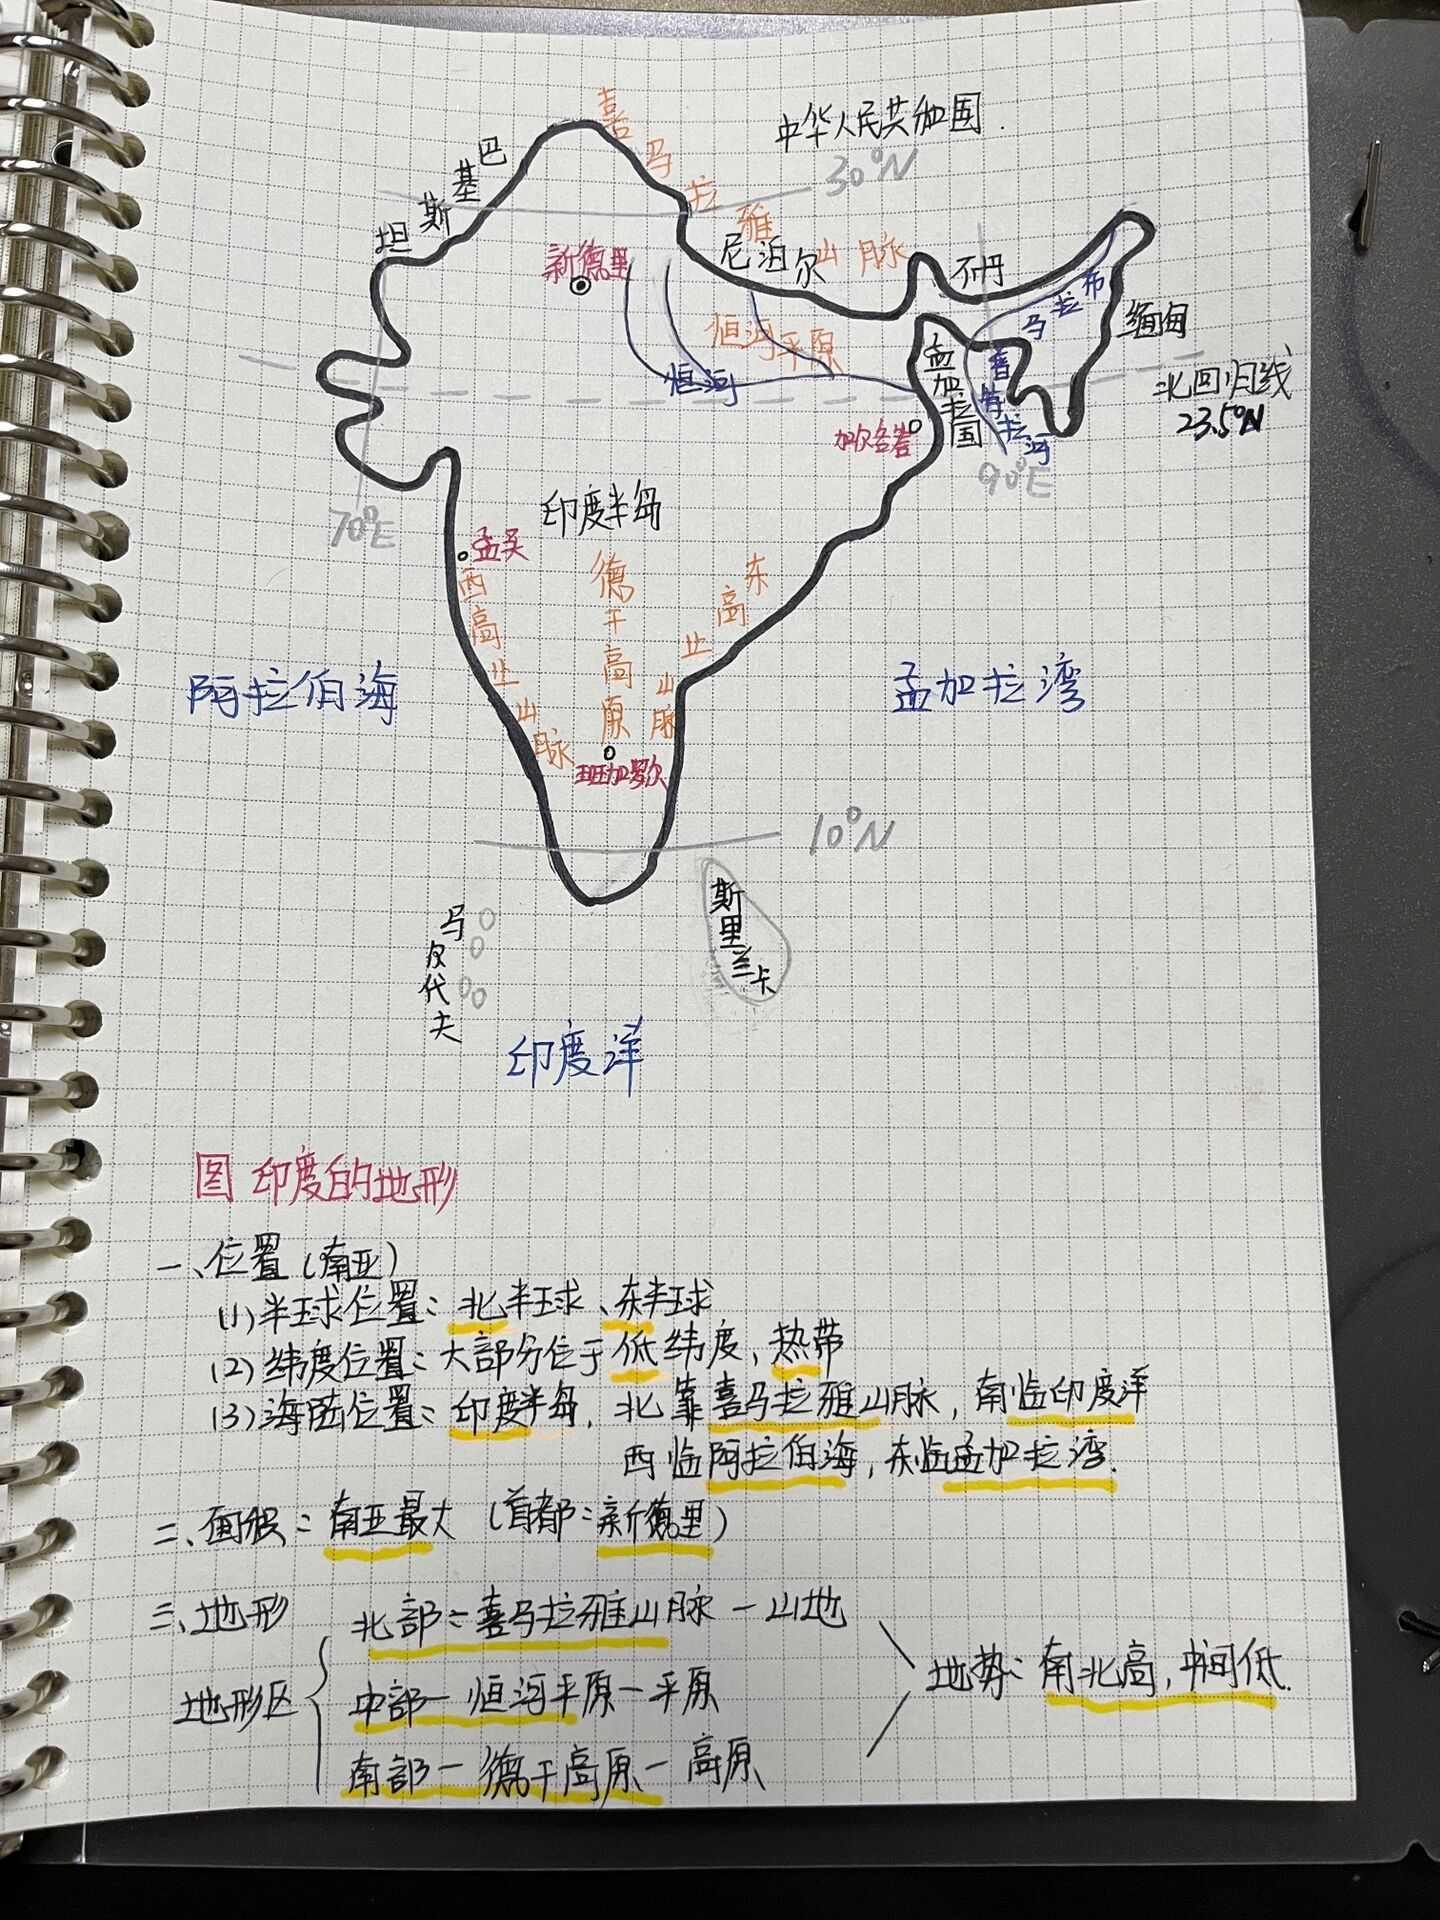 中华人民共和国
喜马拉雅山脉
巴基斯坦
30°N
尼泊尔
不丹
新德里
布拉马普特拉河
缅甸
恒河平原
恒河
孟加拉国
北回归线
23.5°N
加尔各答
90°E
70°E
印度半岛
孟买
西高止山脉
德干高原
东高止山脉
阿拉伯海
孟加拉湾
班加罗尔
10°N
斯里兰卡
马尔代夫
印度洋
图 印度的地形
一、位置(南亚)
(1)半球位置:北半球、东半球
(2)纬度位置:大部分位于低纬度,热带
(3)海陆位置:印度半岛,北靠喜马拉雅山脉,南临印度洋
西临阿拉伯海,东临孟加拉湾.
二、面积:南亚最大(首都:新德里)
三、地形
北部:喜马拉雅山脉-山地
地形区 中部-恒河平原-平原 地势:南北高,中间低.
南部-德干高原-高原